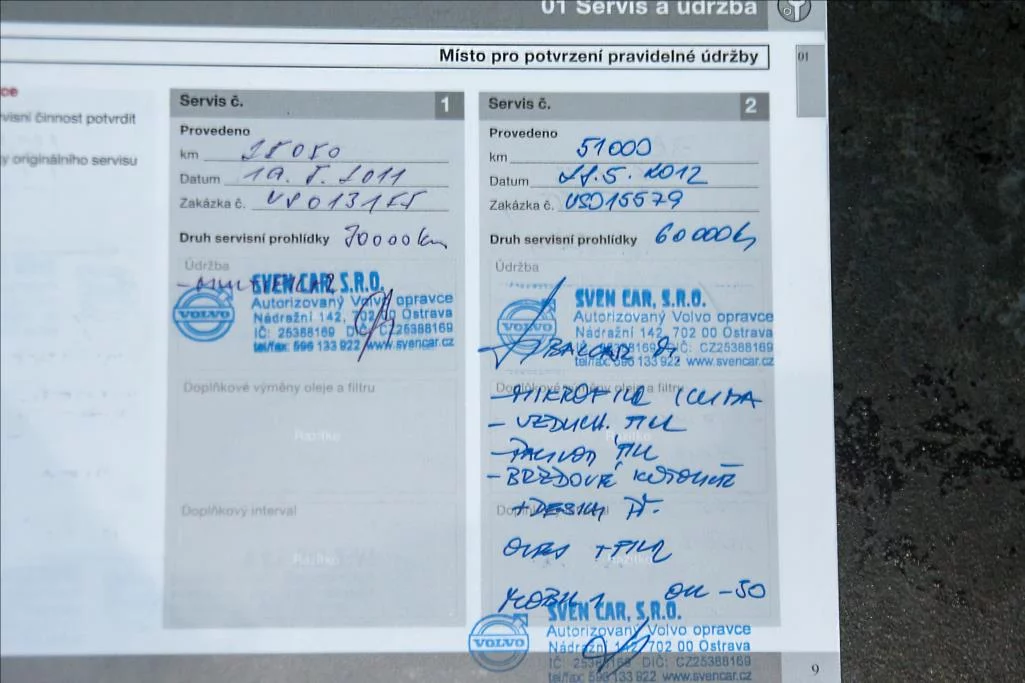 01 Servis a údržba
Místo pro potvrzení pravidelné údržby
01
ce
visní činnost potvrdit
y originálního servisu
Servis č. 1
Provedeno
km
Datum 2011
Zakázka č.
Druh servisní prohlídky 30000 km
Údržba
SVEN CAR, S.R.O.
Autorizovaný Volvo opravce
Nádražní 142, 702 00 Ostrava
IČ: 25388169 DIČ: CZ25388169
tel/fax: 596 133 922 www.svencar.cz
VOLVO
Doplňkové výměny oleje a filtru
Razítko
Doplňkový interval
Razítko
Servis č. 2
Provedeno
km 51000
Datum 5. 2012
Zakázka č. USO15579
Druh servisní prohlídky 60000
Údržba
SVEN CAR, S.R.O.
Autorizovaný Volvo opravce
Nádražní 142, 702 00 Ostrava
IČ: 25388169 DIČ: CZ25388169
tel/fax: 596 133 922 www.svencar.cz
VOLVO
Doplňkové výměny oleje a filtru
- MIKROFILTR
- VZDUCH.
Razítko
- BRZDOVÉ KOTOUČE
+ DESKY PŘ.
MOBIL 1 0W-30
SVEN CAR, S.R.O.
Autorizovaný Volvo opravce
Nádražní 142, 702 00 Ostrava
IČ: 25388169 DIČ: CZ25388169
tel/fax: 596 133 922 www.svencar.cz
VOLVO
9